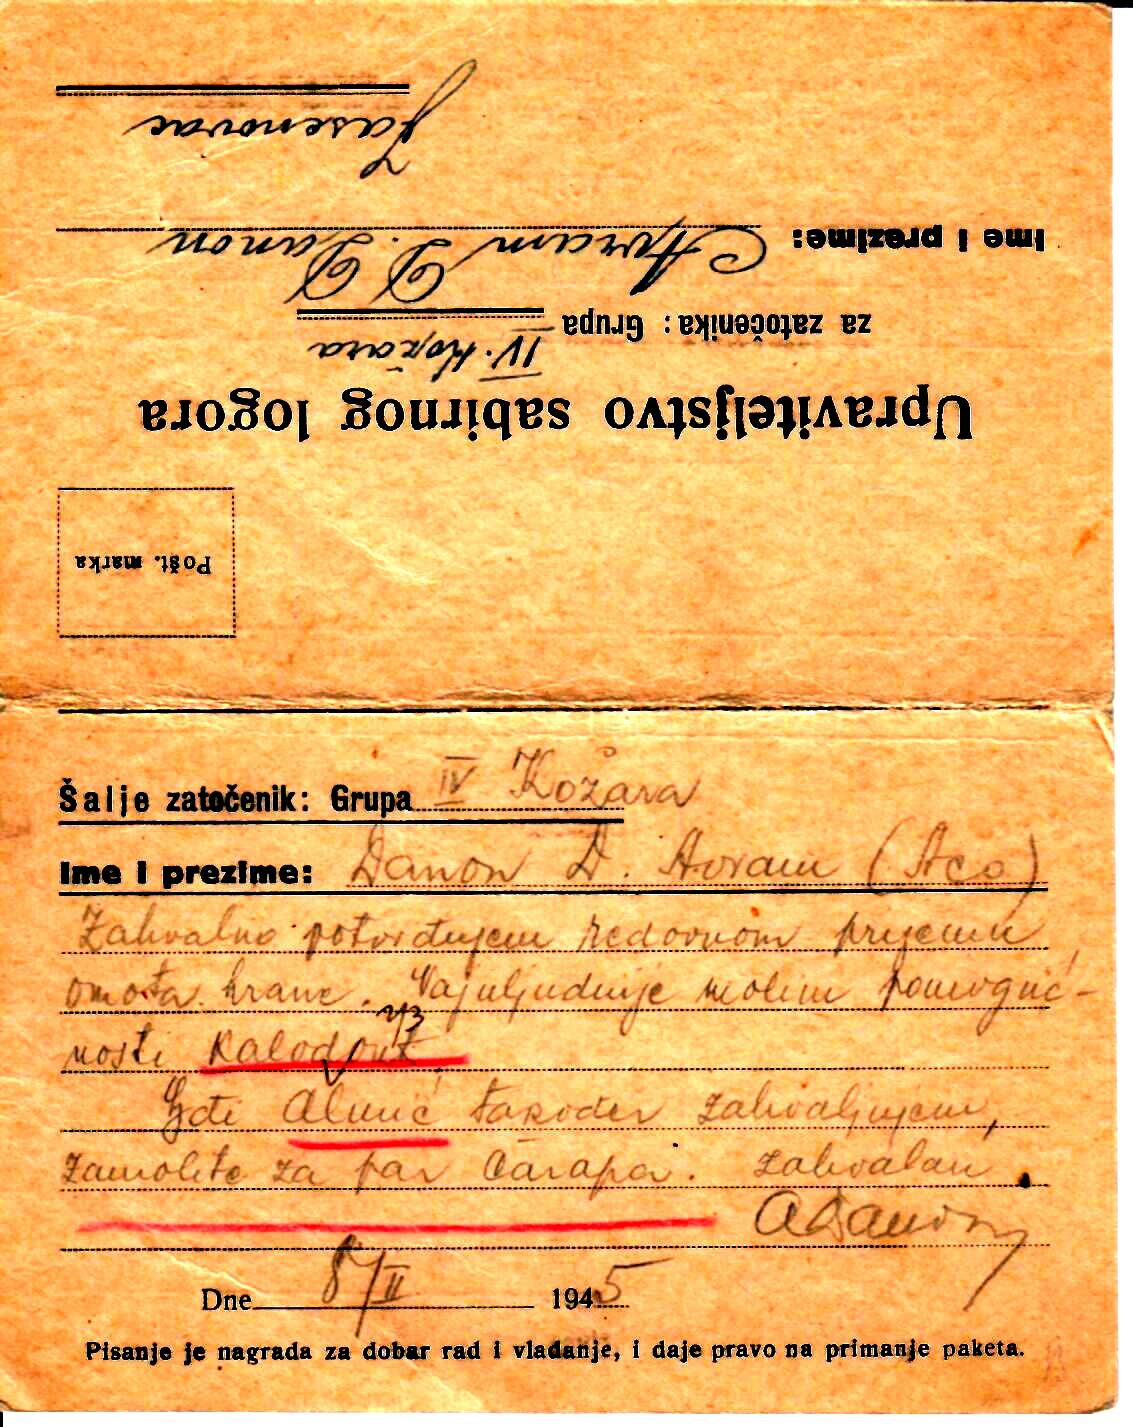 Pošt. marka
Upraviteljstvo sabirnog logora
za zatočenika: Grupa IV. Kožara
Ime i prezime: Avram D. Danon
Jasenovac
Šalje zatočenik: Grupa IV Kožara
Ime i prezime: Danon D. Avram (Aco)
Zahvalno potvrđujem redovnom prijemu
omota hrane. Najuljudnije molim pomoguć-
nosti Kalodont
Gđi također zahvaljujem,
zamolite za par čarapa. Zahvalan
ADanon
Dne 8/II 1945
Pisanje je nagrada za dobar rad i vladanje, i daje pravo na primanje paketa.